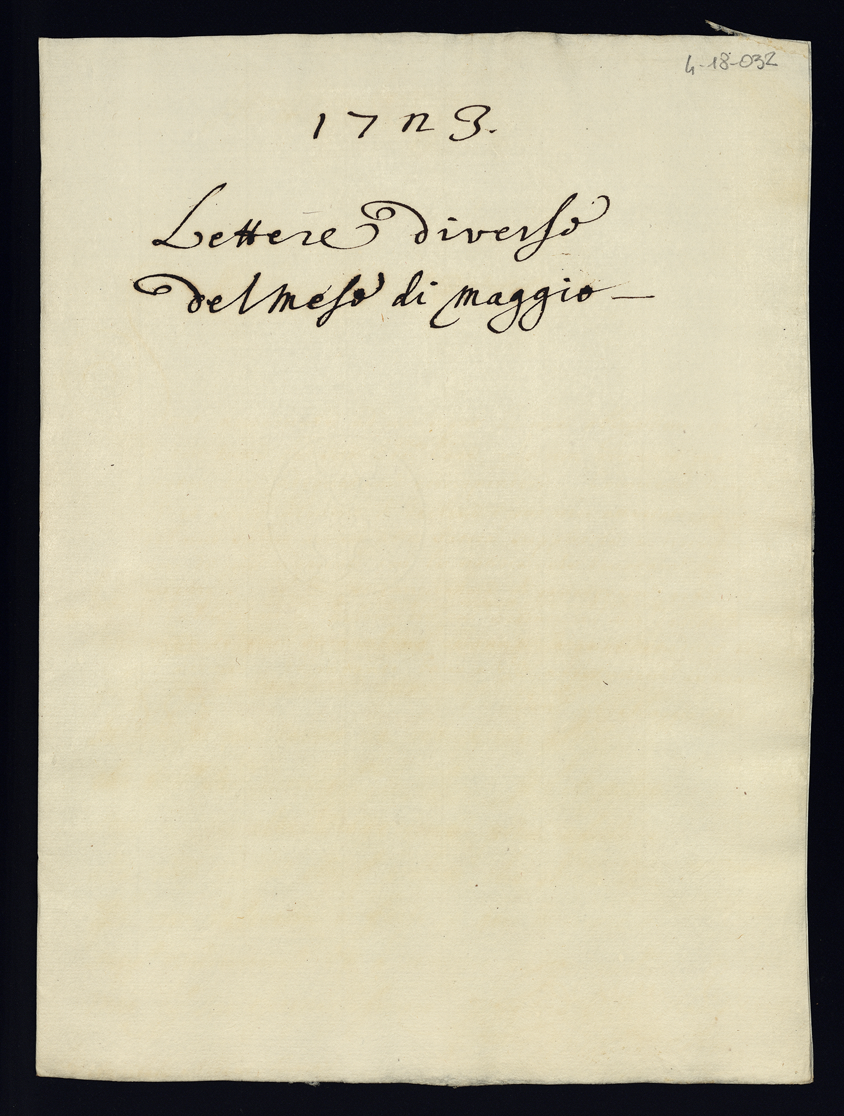 4-18-032
1723.
Lettere diverse
del mese di maggio